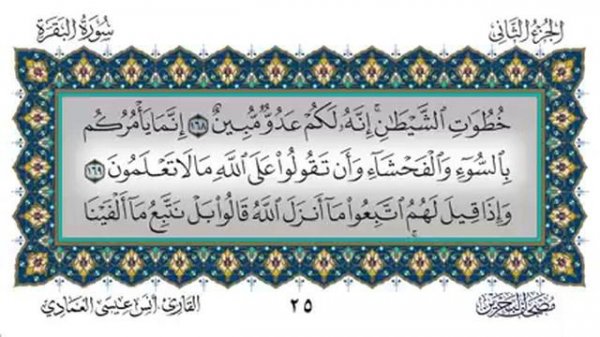 الجزء الثاني
سورة البقرة
خُطُوَٰتِ ٱلشَّيْطَٰنِۚ إِنَّهُۥ لَكُمْ عَدُوٌّ مُّبِينٌ ١٦٨ إِنَّمَا يَأْمُرُكُم
بِٱلسُّوٓءِ وَٱلْفَحْشَآءِ وَأَن تَقُولُوا۟ عَلَى ٱللَّهِ مَا لَا تَعْلَمُونَ ١٦٩
وَإِذَا قِيلَ لَهُمُ ٱتَّبِعُوا۟ مَآ أَنزَلَ ٱللَّهُ قَالُوا۟ بَلْ نَتَّبِعُ مَآ أَلْفَيْنَا
مصحف البحرين
٢٥
القارئ: أنس عيسى العمادي